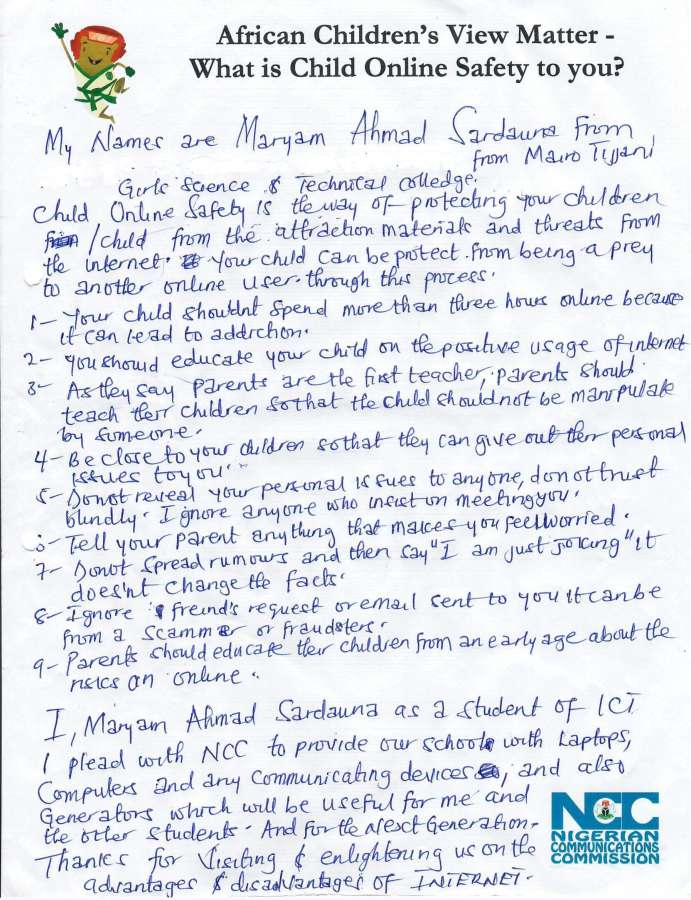 African Children's View Matter -
What is Child Online Safety to you?
My Names are Maryam Ahmad Sardauna From
from Mairo Tijjani
Girls Science & Technical colledge.
Child Online Safety Is the way of protecting your children
/child from the attraction materials and threats from
the internet. Your child can be protect from being a prey
to another online user through this process.
1- Your child shouldnt spend more than three hours online because
it can lead to addiction.
2- you should educate your child on the positive usage of internet
3- As they say parents are the first teacher, parents should
teach their children so that the child should not be manipulate
by someone.
4- Be close to your children so that they can give out their personal
issues to you.
5- Donot reveal your personal issues to anyone, do not trust
blindly. I ignore anyone who insist on meeting you.
6- Tell your parent anything that makes you feel worried.
7- Donot spread rumours and then say "I am just joking" it
does'nt change the facts.
8- Ignore freind's request or email sent to you it can be
from a scammer or fraudsters.
9- Parents should educate their children from an early age about the
risks on online.
I, Maryam Ahmad Sardauna as a student of ICT
I plead with NCC to provide our school with Laptops,
Computers and any communicating devices, and also
Generators which will be useful for me and
the other students. And for the Next Generation.
Thanks for Visiting & enlightening us on the
advantages & disadvantages OF INTERNET.
NCC
NIGERIAN
COMMUNICATIONS
COMMISSION